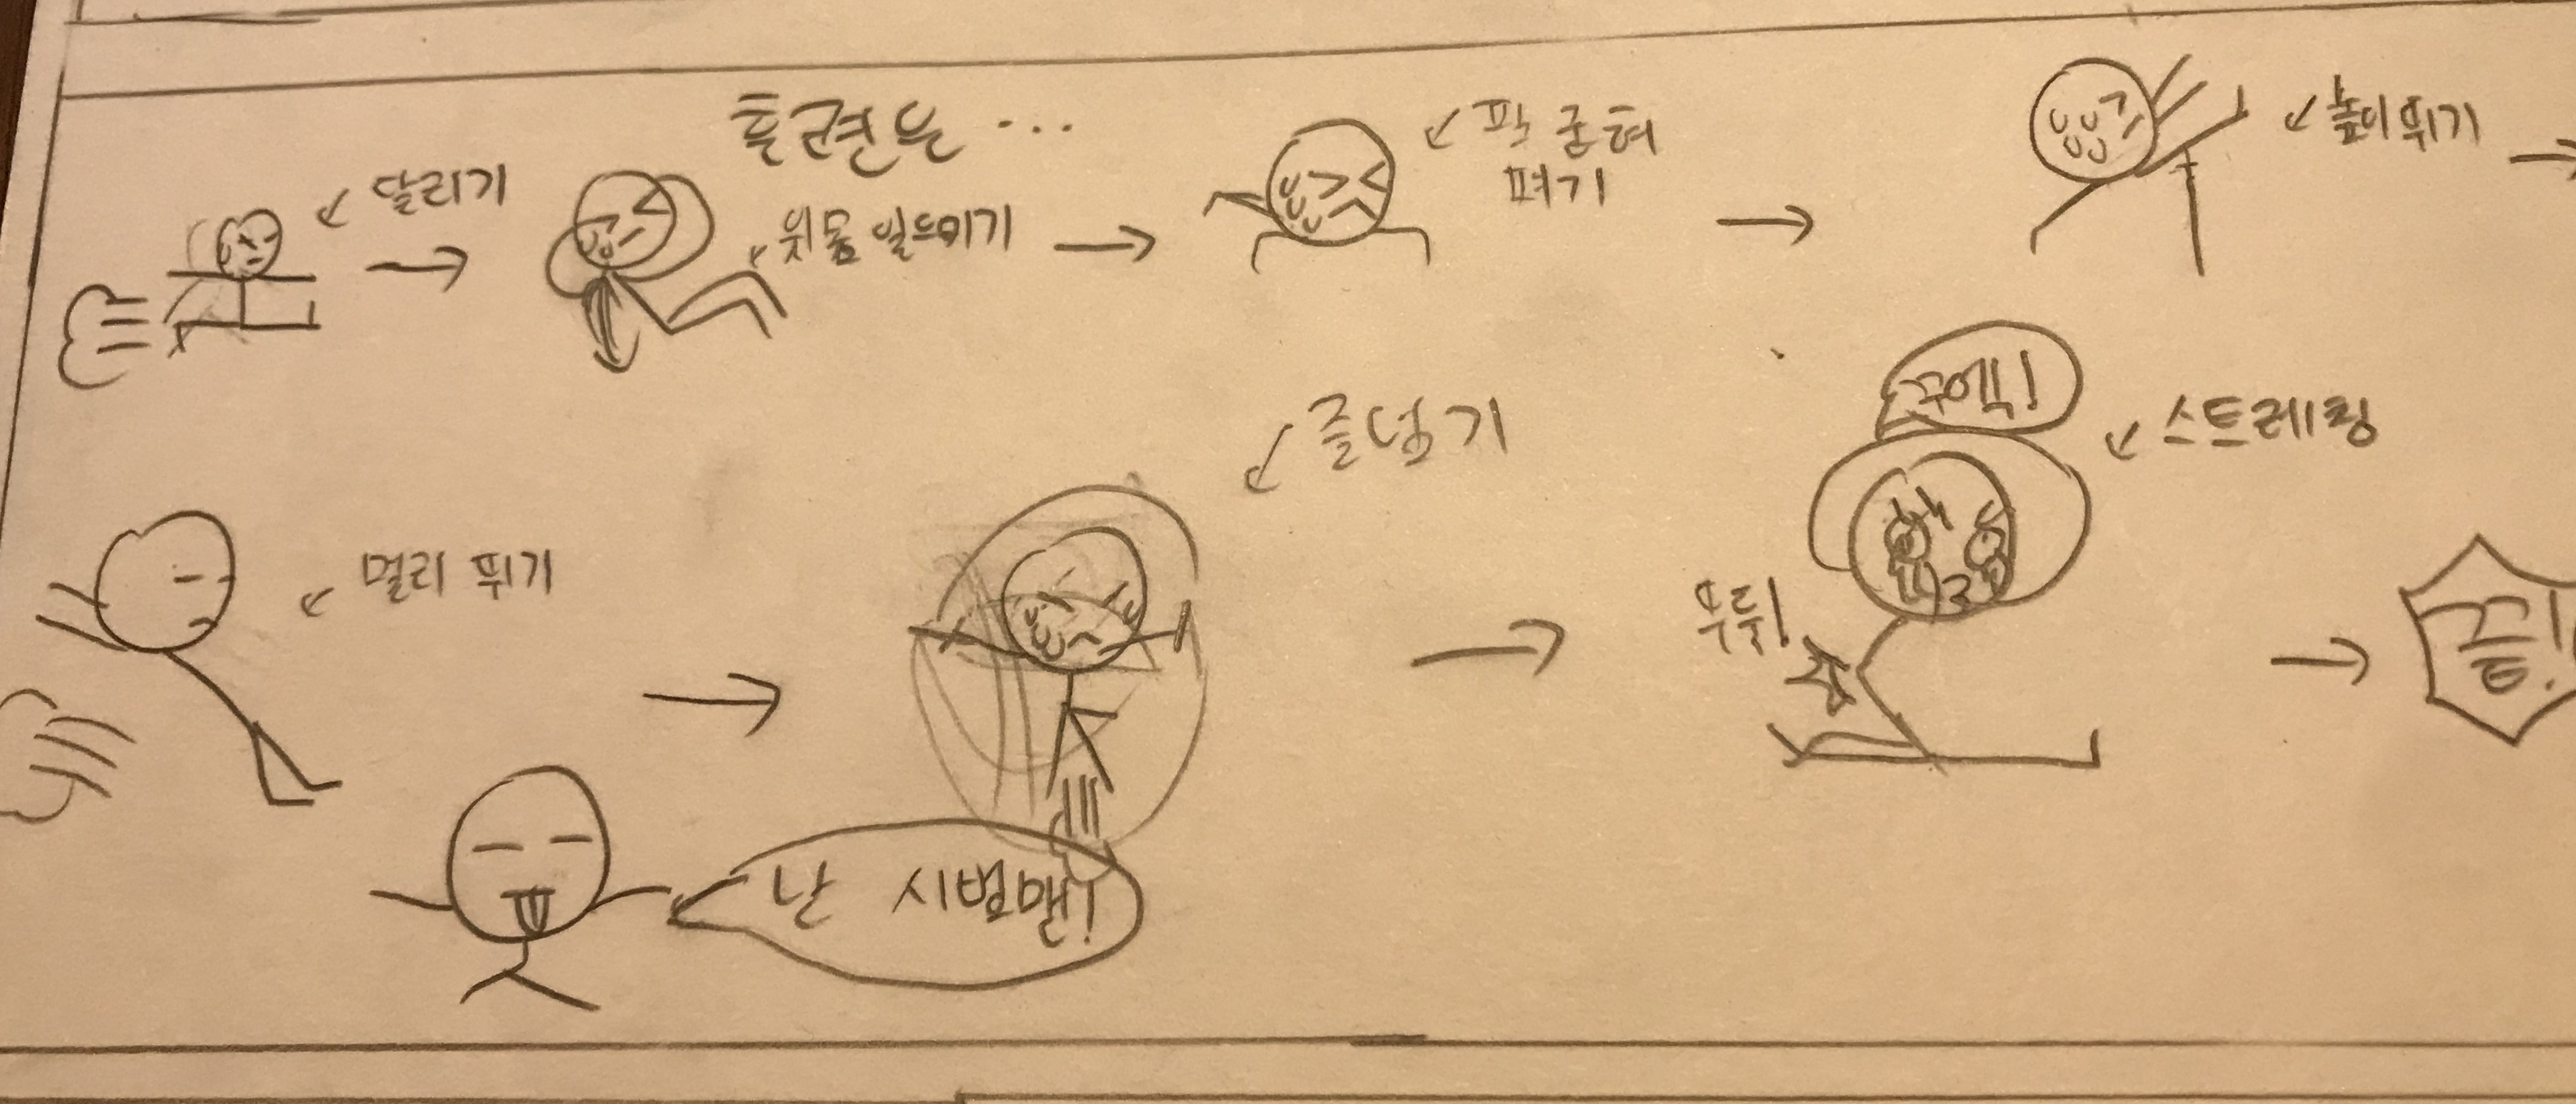 훈련은...
달리기
윗몸 일으키기
팔 굽혀
펴기
높이뛰기
멀리 뛰기
줄넘기
꾸엑!
스트레칭
뚜둑!
끝!
난 시범맨!